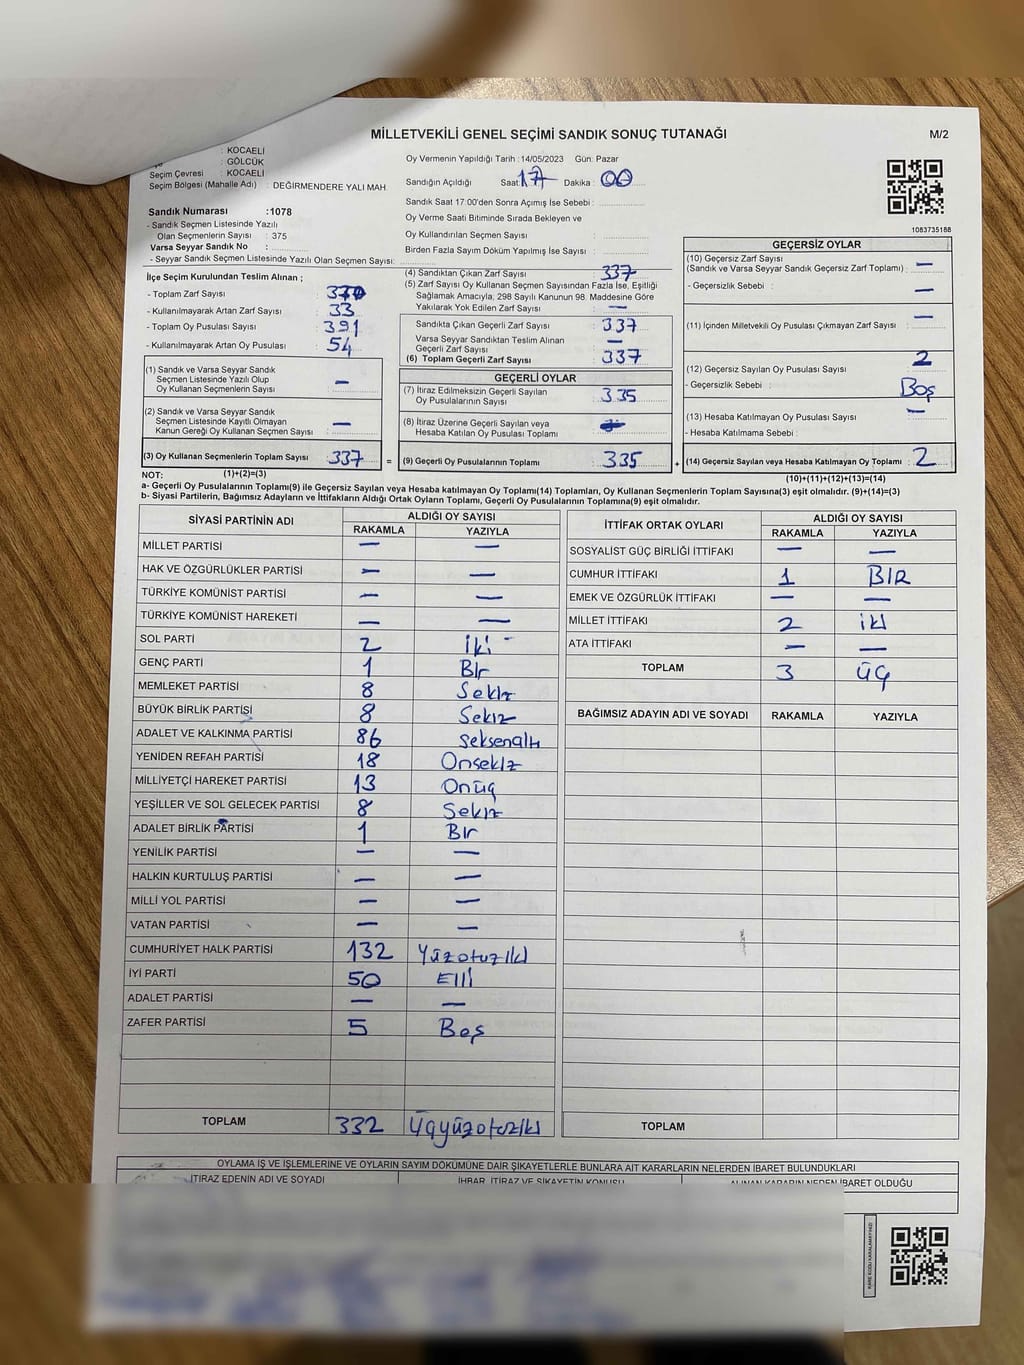 MİLLETVEKİLİ GENEL SEÇİMİ SANDIK SONUÇ TUTANAĞI
M/2
: KOCAELİ
: GÖLCÜK
Seçim Çevresi : KOCAELİ
Seçim Bölgesi (Mahalle Adı) : DEĞİRMENDERE YALI MAH.
Oy Vermenin Yapıldığı Tarih :14/05/2023 Gün: Pazar
Sandığın Açıldığı Saat: 17 Dakika : 00
Sandık Saat 17:00'den Sonra Açılmış İse Sebebi :
Oy Verme Saati Bitiminde Sırada Bekleyen ve
Oy Kullandırılan Seçmen Sayısı :
Birden Fazla Sayım Döküm Yapılmış İse Sayısı :
1083735188
Sandık Numarası :1078
- Sandık Seçmen Listesinde Yazılı
Olan Seçmenlerin Sayısı : 375
Varsa Seyyar Sandık No :
- Seyyar Sandık Seçmen Listesinde Yazılı Olan Seçmen Sayısı:
İlçe Seçim Kurulundan Teslim Alınan ;
- Toplam Zarf Sayısı :
- Kullanılmayarak Artan Zarf Sayısı : 33
- Toplam Oy Pusulası Sayısı : 391
- Kullanılmayarak Artan Oy Pusulası : 54
(1) Sandık ve Varsa Seyyar Sandık
Seçmen Listesinde Yazılı Olup
Oy Kullanan Seçmenlerin Sayısı : —
(2) Sandık ve Varsa Seyyar Sandık
Seçmen Listesinde Kayıtlı Olmayan
Kanun Gereği Oy Kullanan Seçmen Sayısı : —
(3) Oy Kullanan Seçmenlerin Toplam Sayısı : 337 =
(1)+(2)=(3)
(4) Sandıktan Çıkan Zarf Sayısı : 337
(5) Zarf Sayısı Oy Kullanan Seçmen Sayısından Fazla İse, Eşitliği
Sağlamak Amacıyla, 298 Sayılı Kanunun 98. Maddesine Göre
Yakılarak Yok Edilen Zarf Sayısı : —
Sandıkta Çıkan Geçerli Zarf Sayısı : 337
Varsa Seyyar Sandıktan Teslim Alınan
Geçerli Zarf Sayısı : —
(6) Toplam Geçerli Zarf Sayısı : 337
GEÇERLİ OYLAR
(7) İtiraz Edilmeksizin Geçerli Sayılan
Oy Pusulalarının Sayısı : 335
(8) İtiraz Üzerine Geçerli Sayılan veya
Hesaba Katılan Oy Pusulası Toplamı :
(9) Geçerli Oy Pusulalarının Toplamı : 335 +
GEÇERSİZ OYLAR
(10) Geçersiz Zarf Sayısı
(Sandık ve Varsa Seyyar Sandık Geçersiz Zarf Toplamı) : —
- Geçersizlik Sebebi : —
(11) İçinden Milletvekili Oy Pusulası Çıkmayan Zarf Sayısı : —
(12) Geçersiz Sayılan Oy Pusulası Sayısı : 2
- Geçersizlik Sebebi : Boş
(13) Hesaba Katılmayan Oy Pusulası Sayısı : —
- Hesaba Katılmama Sebebi :
(14) Geçersiz Sayılan veya Hesaba Katılmayan Oy Toplamı : 2
(10)+(11)+(12)+(13)=(14)
NOT:
a- Geçerli Oy Pusulası Toplamı(9) ile Geçersiz Sayılan veya Hesaba katılmayan Oy Toplamı(14) Toplamları, Oy Kullanan Seçmenlerin Toplam Sayısına(3) eşit olmalıdır. (9)+(14)=(3)
b- Siyasi Partilerin, Bağımsız Adayların ve İttifakların Aldığı Ortak Oyların Toplamı, Geçerli Oy Pusulalarının Toplamına(9) eşit olmalıdır.
SİYASİ PARTİNİN ADI ALDIĞI OY SAYISI
RAKAMLA YAZIYLA
MİLLET PARTİSİ — —
HAK VE ÖZGÜRLÜKLER PARTİSİ — —
TÜRKİYE KOMÜNİST PARTİSİ — —
TÜRKİYE KOMÜNİST HAREKETİ — —
SOL PARTİ 2 İki
GENÇ PARTİ 1 Bir
MEMLEKET PARTİSİ 8 Sekiz
BÜYÜK BİRLİK PARTİSİ 8 Sekiz
ADALET VE KALKINMA PARTİSİ 86 Seksenaltı
YENİDEN REFAH PARTİSİ 18 Onsekiz
MİLLİYETÇİ HAREKET PARTİSİ 13 Onüç
YEŞİLLER VE SOL GELECEK PARTİSİ 8 Sekiz
ADALET BİRLİK PARTİSİ 1 Bir
YENİLİK PARTİSİ — —
HALKIN KURTULUŞ PARTİSİ — —
MİLLİ YOL PARTİSİ — —
VATAN PARTİSİ — —
CUMHURİYET HALK PARTİSİ 132 Yüzotuziki
İYİ PARTİ 50 Elli
ADALET PARTİSİ — —
ZAFER PARTİSİ 5 Beş
TOPLAM 332 Üçyüzotuziki
İTTİFAK ORTAK OYLARI ALDIĞI OY SAYISI
RAKAMLA YAZIYLA
SOSYALİST GÜÇ BİRLİĞİ İTTİFAKI — —
CUMHUR İTTİFAKI 1 BİR
EMEK VE ÖZGÜRLÜK İTTİFAKI — —
MİLLET İTTİFAKI 2 iki
ATA İTTİFAKI — —
TOPLAM 3 ÜÇ
BAĞIMSIZ ADAYIN ADI VE SOYADI RAKAMLA YAZIYLA
TOPLAM
OYLAMA İŞ VE İŞLEMLERİNE VE OYLARIN SAYIM DÖKÜMÜNE DAİR ŞİKAYETLERLE BUNLARA AİT KARARLARIN NELERDEN İBARET BULUNDUKLARI
İTİRAZ EDENİN ADI VE SOYADI İHBAR, İTİRAZ VE ŞİKAYETİN KONUSU ALINAN KARARIN NEDEN İBARET OLDUĞU